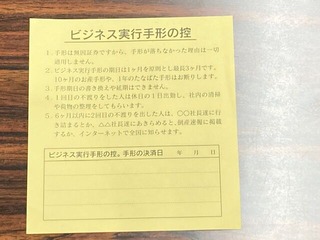 ビジネス実行手形の控
1. 手形は無因証券ですから、手形が落ちなかった理由は一切通用しません。
2. ビジネス実行手形の期日は1ヶ月を原則とし最長3ヶ月です。
10ヶ月のお産手形や、1年のたなばた手形はお断りします。
3. 手形期日の書き換えや延期はできません。
4. 1回目の不渡りをした人は休日の1日出勤し、社内の清掃
や荷物の整理をしてもらいます。
5. 6ヶ月以内に2回目の不渡りを出した人は、〇〇社長達に行
き詰まるとか、△△社長達にあきらめると、倒産速報に掲載
するか、インターネットで全国に知らせます。
ビジネス実行手形の控。手形の決済日 年 月 日